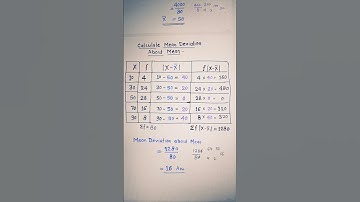 4000
80
X = 50
Calculate Mean Deviation
About Mean -
X f |X-X̄| f|X-X̄|
10 4 10 - 50 = 40 4 × 40 = 160
30 24 30 - 50 = 20 24 × 20 = 480
50 28 50 - 50 = 0 28 × 0 = 0
70 16 70 - 50 = 20 16 × 20 = 320
90 8 90 - 50 = 40 8 × 40 = 320
Σf = 80 Σf|X-X̄| = 1280
Mean Deviation about Mean
= 1280
80
= 16 Ans